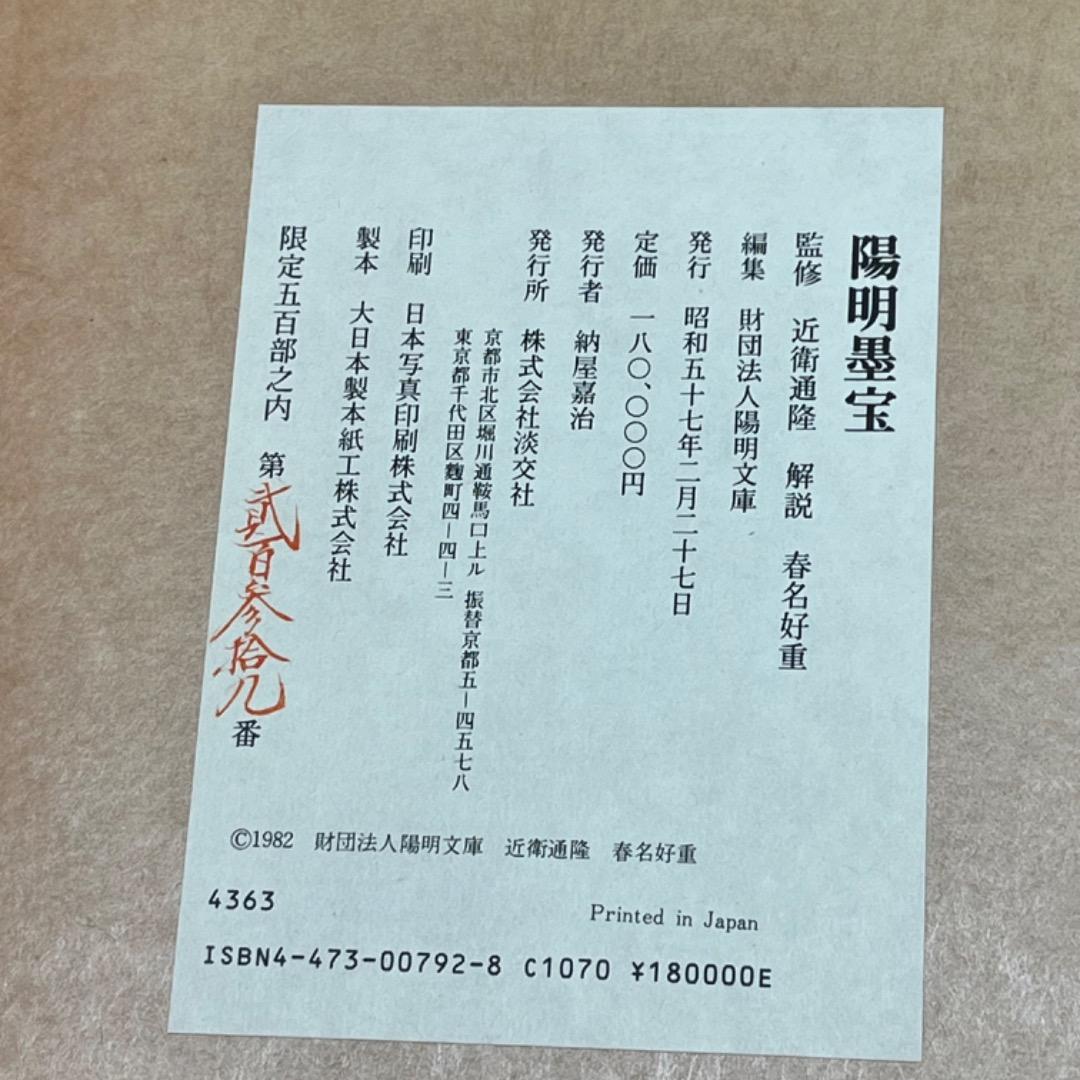 陽明墨宝
監修 近衛通隆 解説 春名好重
編集 財団法人陽明文庫
発行 昭和五十七年二月二十七日
定価 一八〇、〇〇〇円
発行者 納屋嘉治
発行所 株式会社淡交社
京都市北区堀川通鞍馬口上ル 振替京都五―四五七八
東京都千代田区麹町四―四―三
印刷 日本写真印刷株式会社
製本 大日本製本紙工株式会社
限定五百部之内 第貳百参拾九番
©1982 財団法人陽明文庫 近衛通隆 春名好重
4363
Printed in Japan
ISBN4-473-00792-8 C1070 ¥180000E